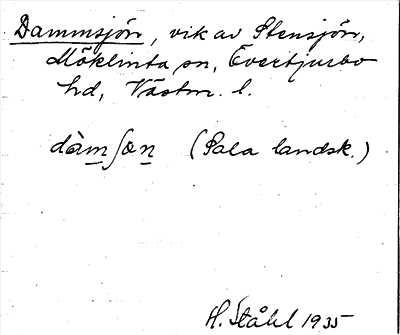 Dammsjön, vik av Stensjön,
Möklinta sn, Övertjurbo
hd, Västm. l.
dàm̲ʃœn̲ (Sala landsk.)
H. Ståhl 1935